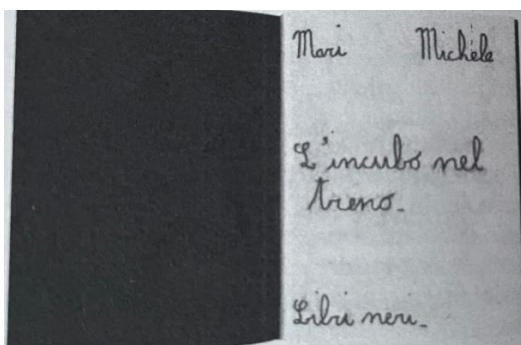 Mari Michele
L'incubo nel
treno.
Libri neri.